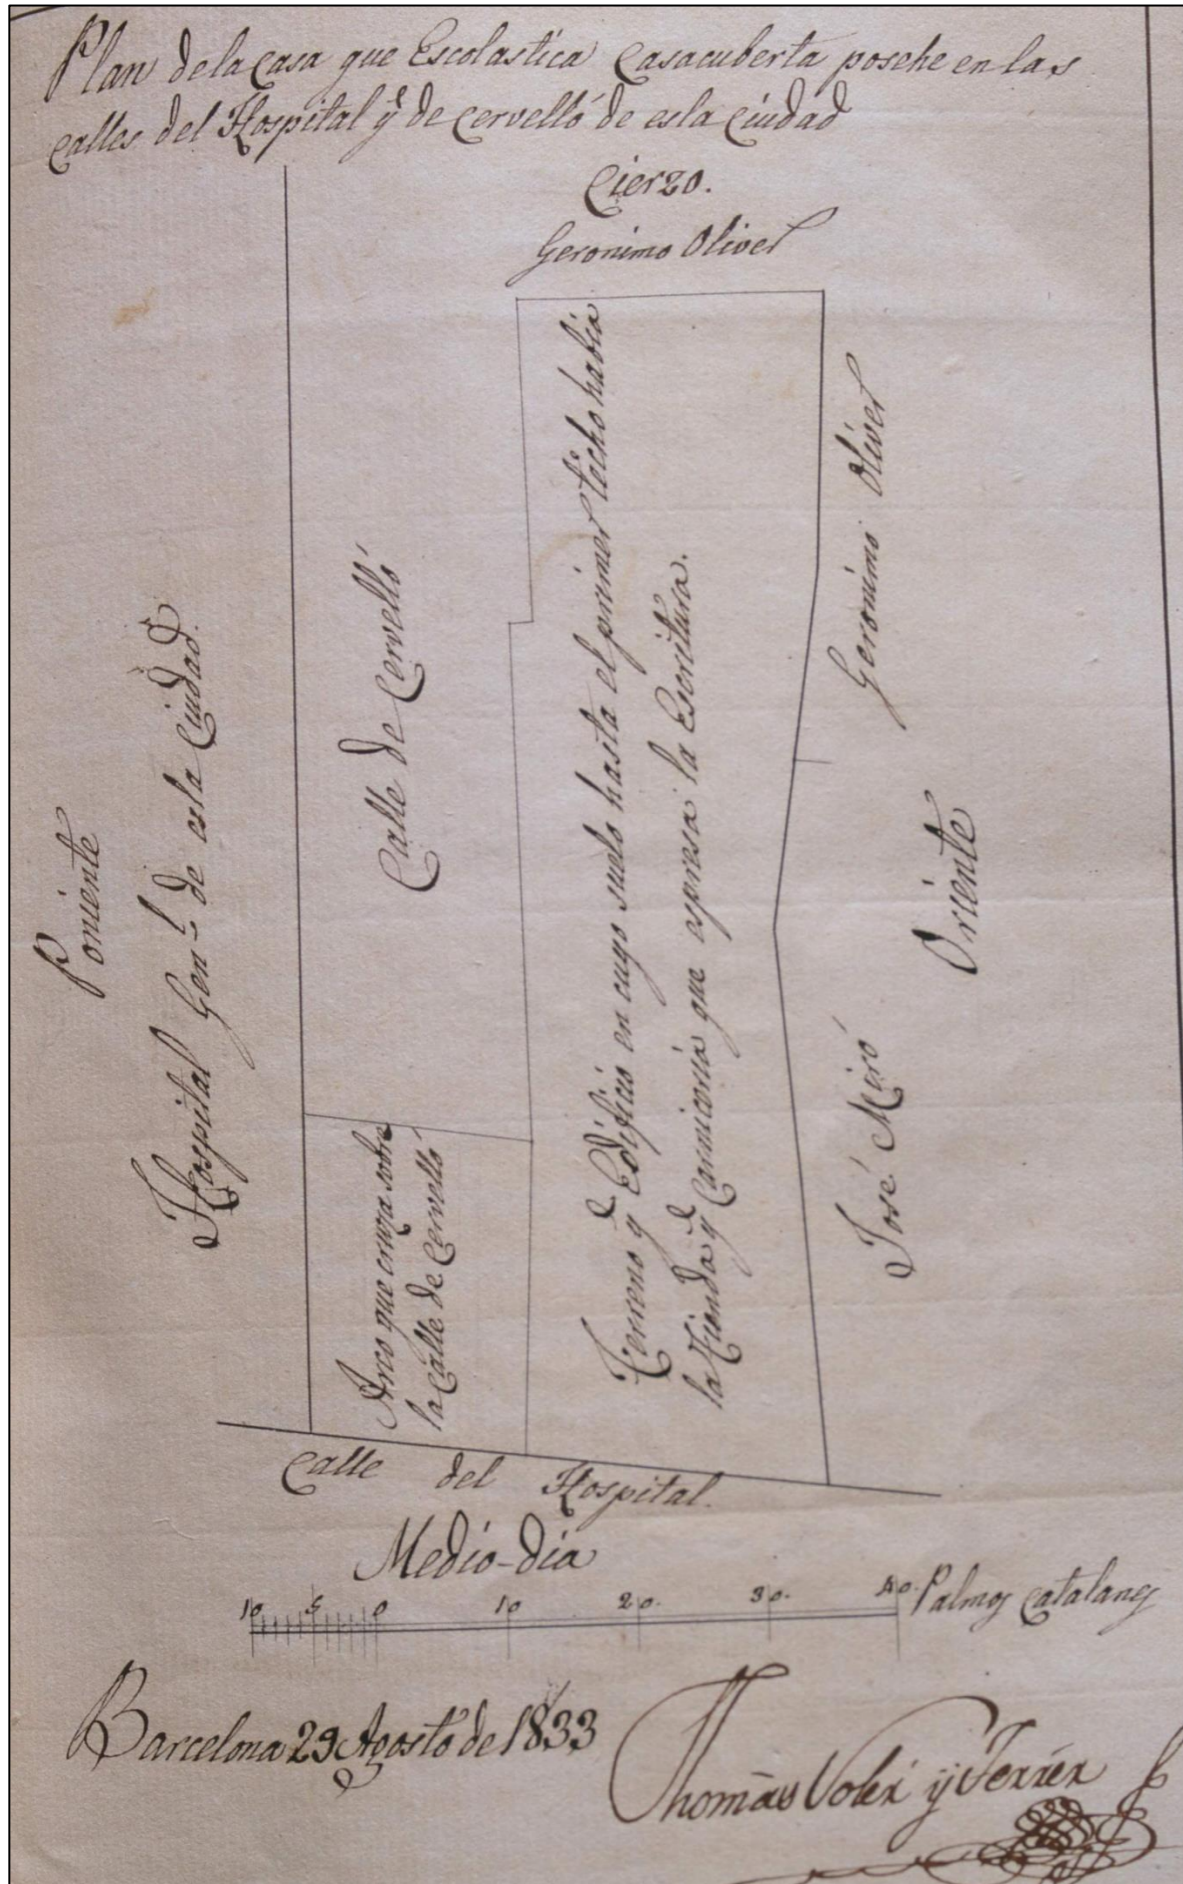 Plan de la Casa que Escolastica Casacuberta posehe en las
calles del Hospital y de Cervelló de esta Ciudad
Cierzo.
Geronimo Oliver
Poniente
Hospital Gen.l de esta Ciudad.
Calle de Cervelló
Arco que cruza sobre
la Calle de Cervelló
Terreno y Edificio en cuyo suelo hasta el primer techo habia
la Tienda y Carniceria que espresa la Escritura.
Geronimo Oliver
Oriente
José Miró
Calle del Hospital.
Medio-dia
10 5 0 10 20. 30. 40. Palmos Catalanes
Barcelona 29 Agosto de 1833
Thomás Soler y Ferrer